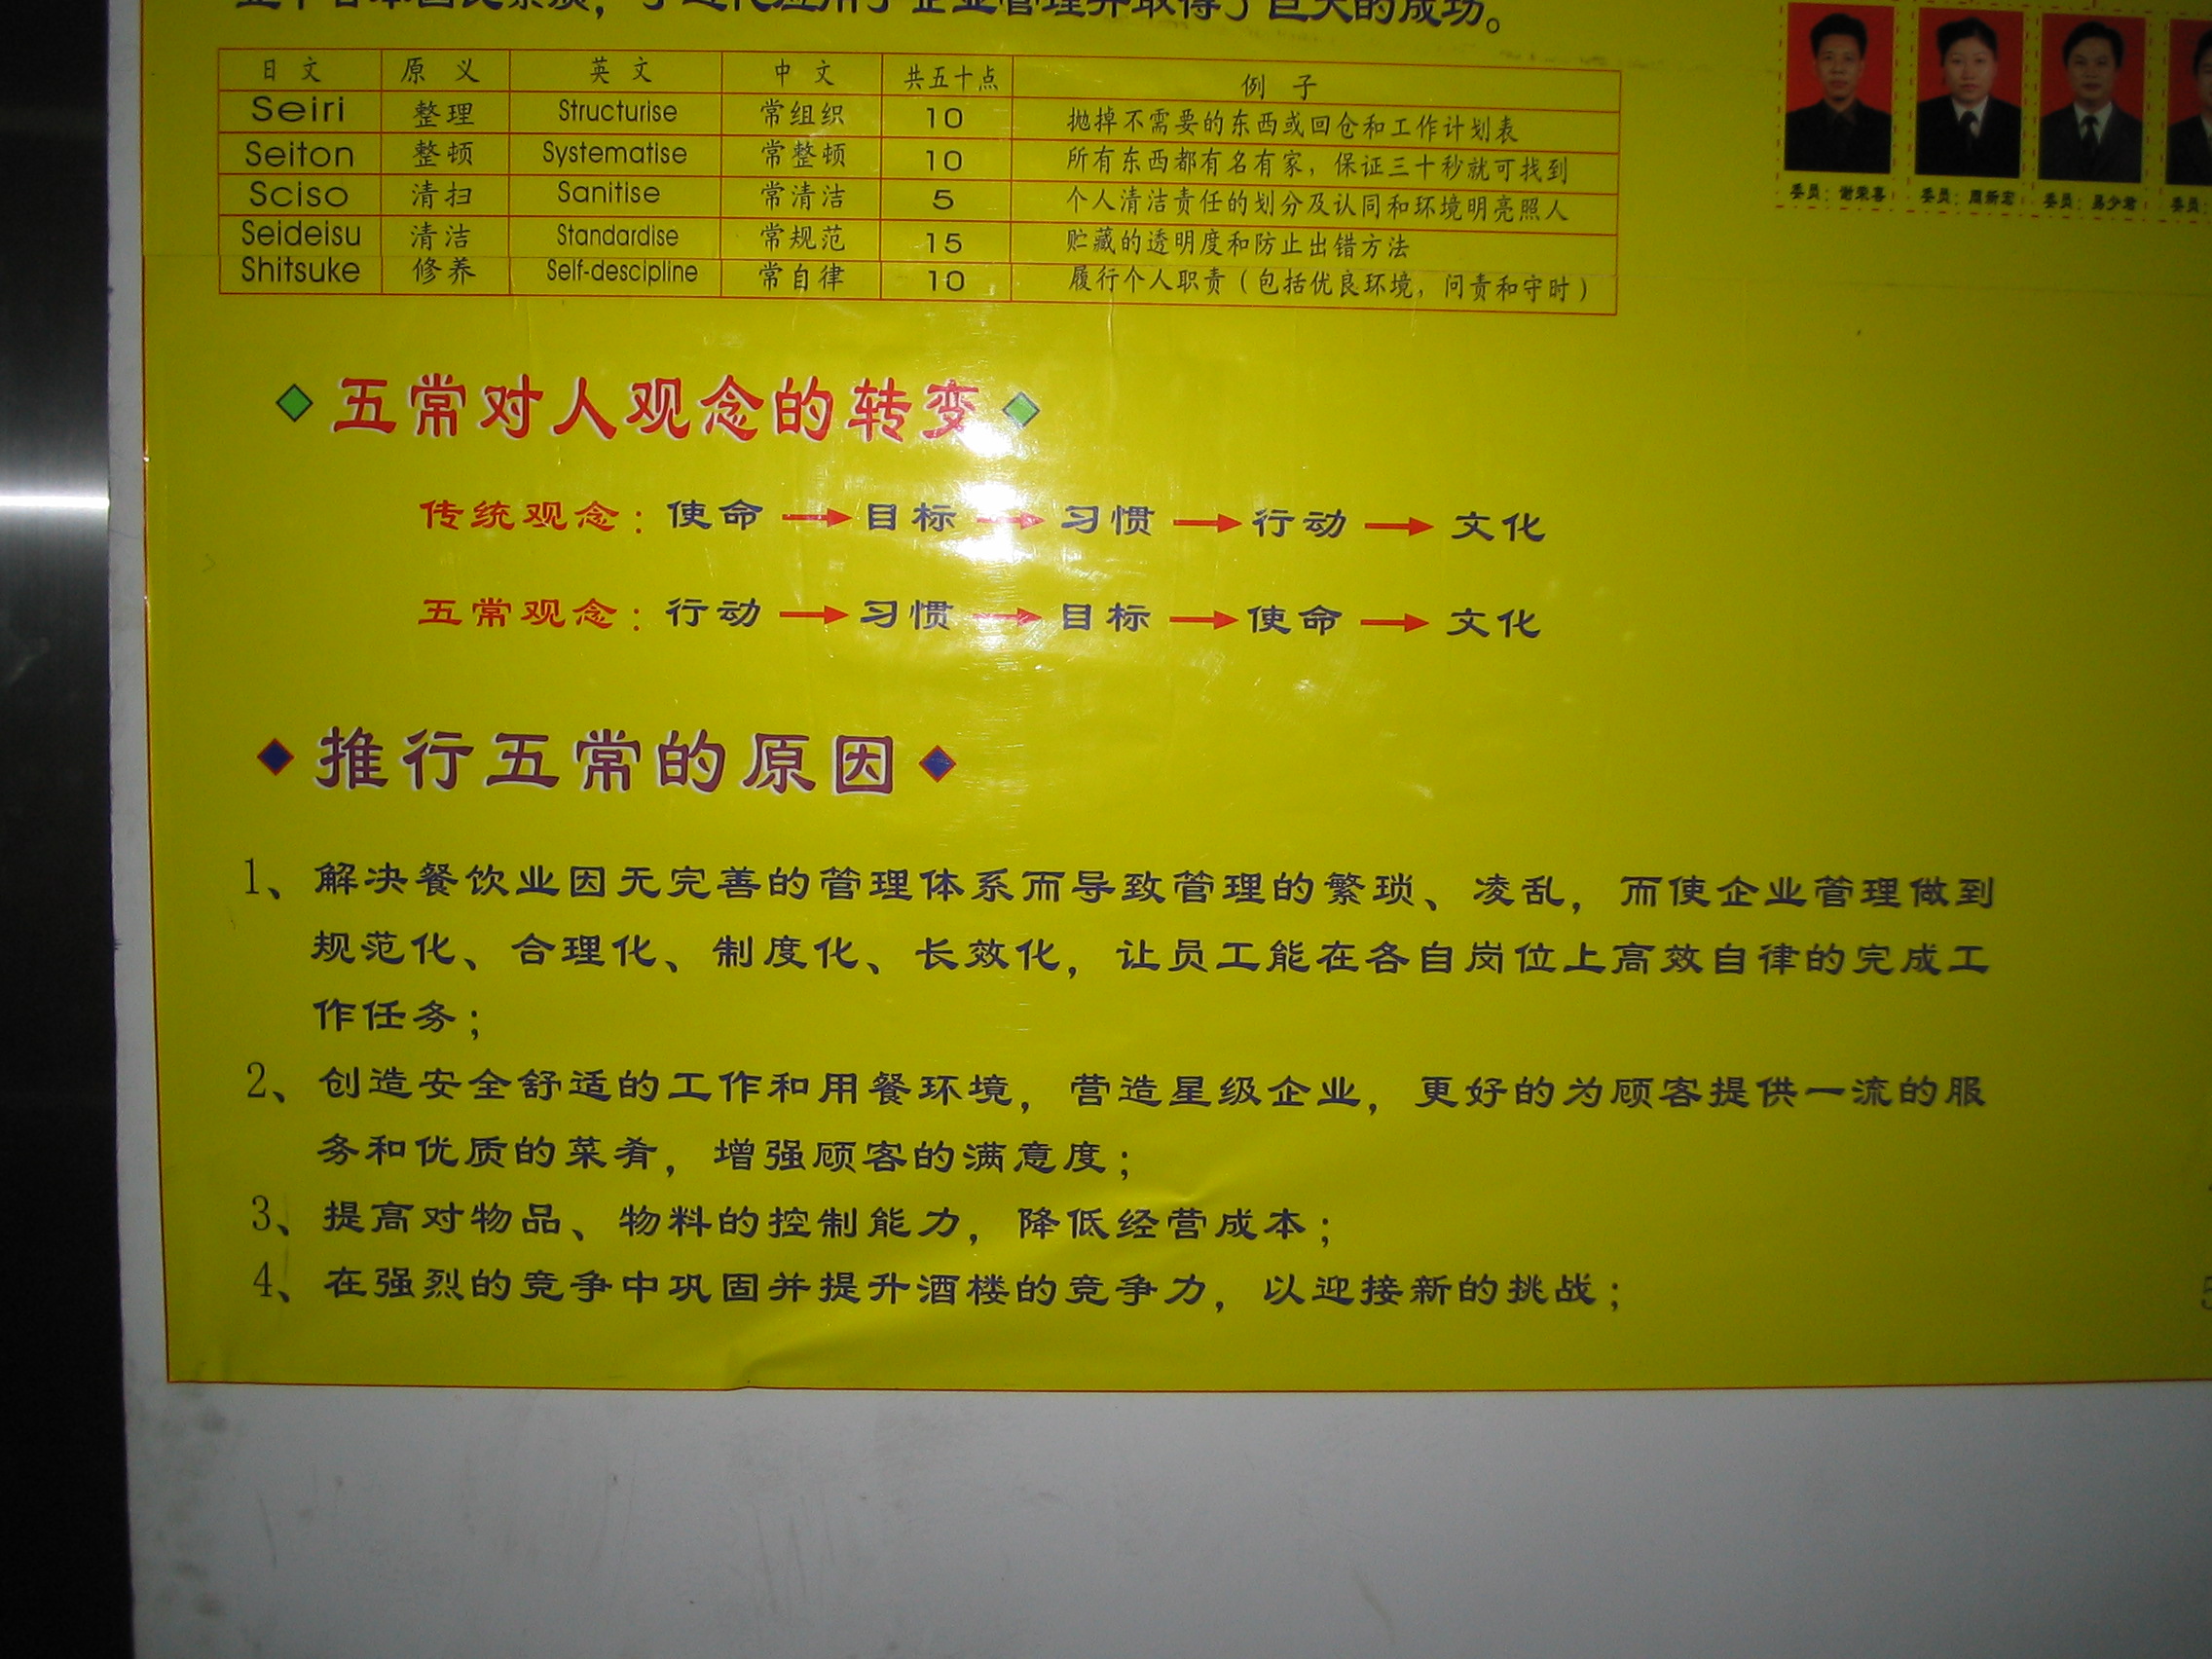 日文 原义 英文 中文 共五十点 例子
Seiri 整理 Structurise 常组织 10 抛掉不需要的东西或回仓和工作计划表
Seiton 整顿 Systematise 常整顿 10 所有东西都有名有家，保证三十秒就可找到
Sciso 清扫 Sanitise 常清洁 5 个人清洁责任的划分及认同和环境明亮照人
Seideisu 清洁 Standardise 常规范 15 贮藏的透明度和防止出错方法
Shitsuke 修养 Self-descipline 常自律 10 履行个人职责（包括优良环境，问责和守时）
委员：谢荣喜
委员：周新宏
委员：吴少君
委员：
五常对人观念的转变
传统观念：使命→目标→习惯→行动→文化
五常观念：行动→习惯→目标→使命→文化
推行五常的原因
1、解决餐饮业因无完善的管理体系而导致管理的繁琐、凌乱，而使企业管理做到
规范化、合理化、制度化、长效化，让员工能在各自岗位上高效自律的完成工
作任务；
2、创造安全舒适的工作和用餐环境，营造星级企业，更好的为顾客提供一流的服
务和优质的菜肴，增强顾客的满意度；
3、提高对物品、物料的控制能力，降低经营成本；
4、在强烈的竞争中巩固并提升酒楼的竞争力，以迎接新的挑战；